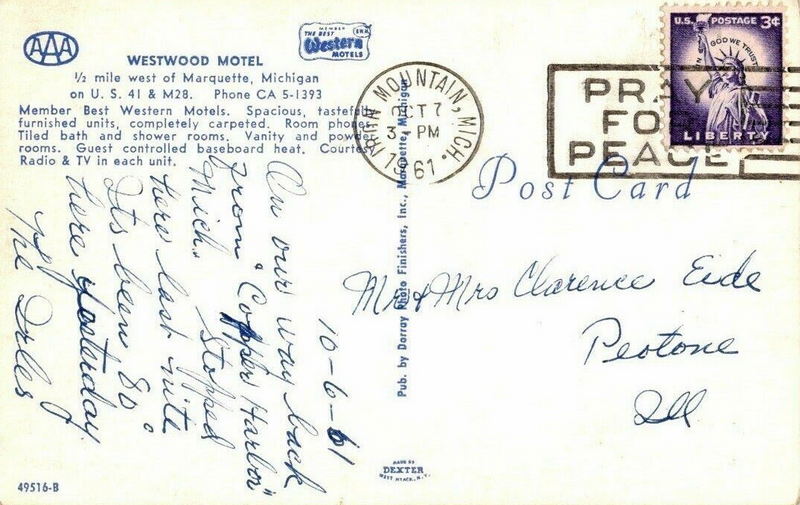 AAA
WESTWOOD MOTEL
½ mile west of Marquette, Michigan
on U. S. 41 & M28. Phone CA 5-1393
Member Best Western Motels. Spacious, tastefully
furnished units, completely carpeted. Room phones.
Tiled bath and shower rooms. Vanity and powder
rooms. Guest controlled baseboard heat. Courtesy
Radio & TV in each unit.
MEMBER
THE BEST
Western
MOTELS
IRON MOUNTAIN, MICH.
OCT 7
3 PM
1961
PRAY
FOR
PEACE
U.S. POSTAGE 3¢
IN GOD WE TRUST
LIBERTY
Post Card
10-6-61
On our way back
from "Copper Harbor"
Mich. Stopped
here last nite.
Its been 80°
here yesterday
The Dales
Mr & Mrs Clarence Eide
Peotone
Ill
Pub. by Dorray Photo Finishers, Inc., Marquette, Michigan
MADE BY
DEXTER
WEST NYACK, N.Y.
49516-B